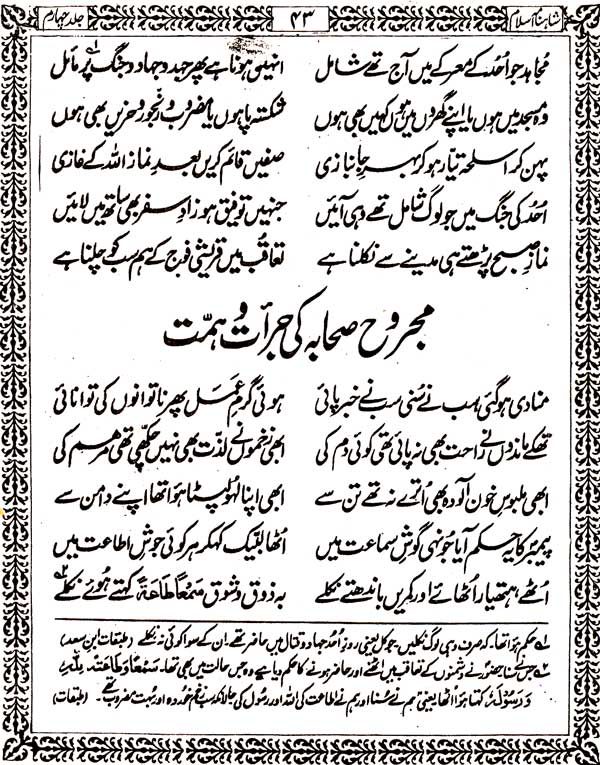 شاہنامۂ اسلام ۴۳ جلد چہارم
مجاہد جو اُحد کے معرکے میں آج تھے شامل انہیں ہونا ہے پھر جہد و جہاد و جنگ پر مائل
وہ مسجد میں ہوں یا اپنے گھروں میں ہوں کہیں بھی ہوں شکستہ پا ہوں یا مضروب و رنجور و حزیں بھی ہوں
پہن کر اسلحہ تیار ہو کر بہرِ جانبازی صفیں قائم کریں بعدِ نماز اللہ کے غازی
اُحد کی جنگ میں جو لوگ شامل تھے وہی آئیں جنہیں توفیق ہو زادِ سفر بھی ساتھ میں لائیں
نمازِ صبح پڑھتے ہی مدینے سے نکلنا ہے تعاقب میں قریشی فوج کے ہم سب کو چلنا ہے
مجروح صحابہ کی جرأت و ہمّت
منادی ہو گئی سب نے سُنی سب نے خبر پائی ہوئی گرمِ عمل پھر ناتوانوں کی توانائی
تھکے ماندوں نے راحت بھی نہ پائی تھی کوئی دم کی ابھی زخموں نے لذّت بھی نہیں چکھی تھی مرہم کی
ابھی ملبوس خون آلودہ بھی اُترے نہ تھے تن سے ابھی اپنا لہو لپٹا ہوا تھا اپنے دامن سے
پیمبرؐ کا یہ حکم آیا جونہی گوشِ سماعت میں اُٹھا لبّیک کہہ کر ہر کوئی جوشِ اطاعت میں
اُٹھے ہتھیار اُٹھائے اور کمریں باندھتے نکلے بہ ذوق و شوق سَمْعًا طَاعَةً کہتے ہوئے نکلے ۲
۱ حکم ہوا تھا کہ صرف وہی لوگ نکلیں۔ جو کل یعنی روزِ اُحد جہاد و قتال میں حاضر تھے، ان کے سوا کوئی نہ نکلے (طبقات ابن سعد)
۲ جس نے سُنا حضورؐ نے دشمنوں کے تعاقب میں اٹھنے اور حاضر ہونے کا حکم دیا ہے وہ جس حالت میں بھی تھا۔ سَمْعًا وَطَاعَةً لِلّٰہِ
وَرَسُوْلِہٖ کہتا ہوا اُٹھا یعنی ہم نے سُنا اور ہم نے اطاعت کی اللہ اور رسول کی حالانکہ سب زخم خوردہ اور بہت مضروب تھے۔ (طبقات)